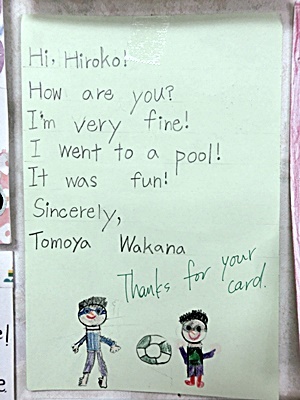 Hi, Hiroko!
How are you?
I'm very fine!
I went to a pool!
It was fun!
Sincerely,
Tomoya Wakana
Thanks for your
card.